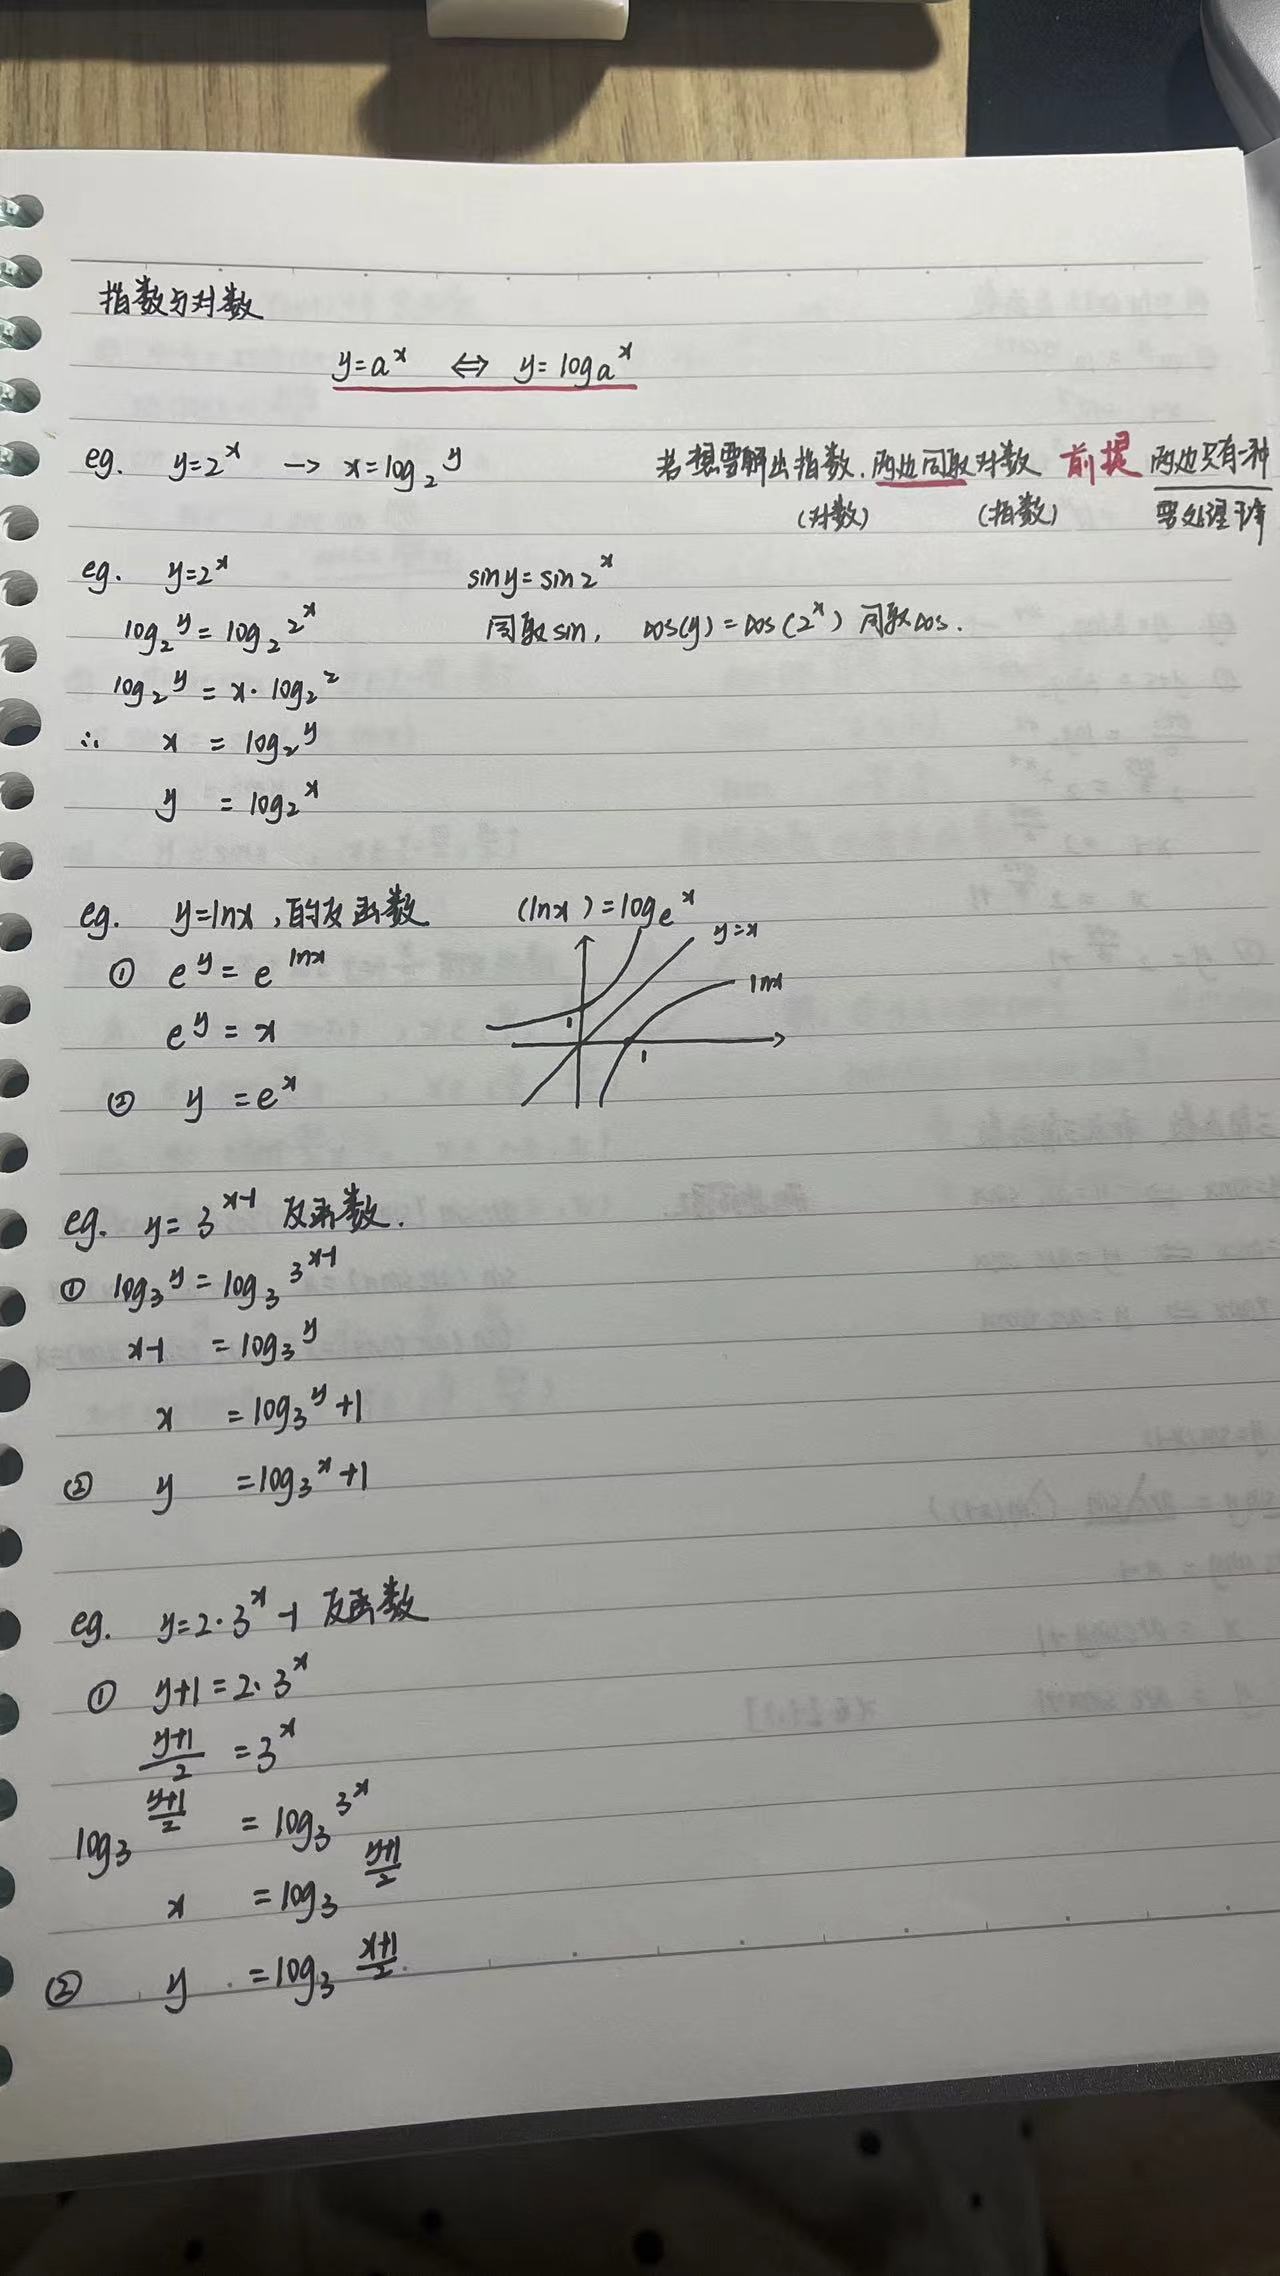 指数与对数
y=a^x ⇔ y=log_a^x
eg. y=2^x → x=log_2^y 若想要解出指数.两边同取对数 前提 两边只有一种
(对数) (指数) 要处理干净
eg. y=2^x siny=sin2^x
log_2^y=log_2^2^x 同取sin, cos(y)=cos(2^x) 同取cos.
log_2^y=x·log_2^2
∴ x=log_2^y
y=log_2^x
eg. y=lnx,的反函数 (lnx)=log_e^x
y=x
① e^y=e^lnx
lnx
1
e^y=x
1
② y=e^x
eg. y=3^x-1 反函数.
① log_3^y=log_3^3^x-1
x-1=log_3^y
x=log_3^y+1
② y=log_3^x+1
eg. y=2·3^x-1 反函数
① y+1=2·3^x
y+1/2=3^x
log_3^y+1/2=log_3^3^x
x=log_3^y+1/2
② y=log_3^x+1/2.